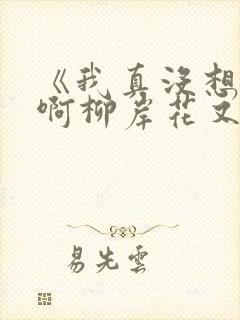 《我真没想
啊柳岸花又
易先雲